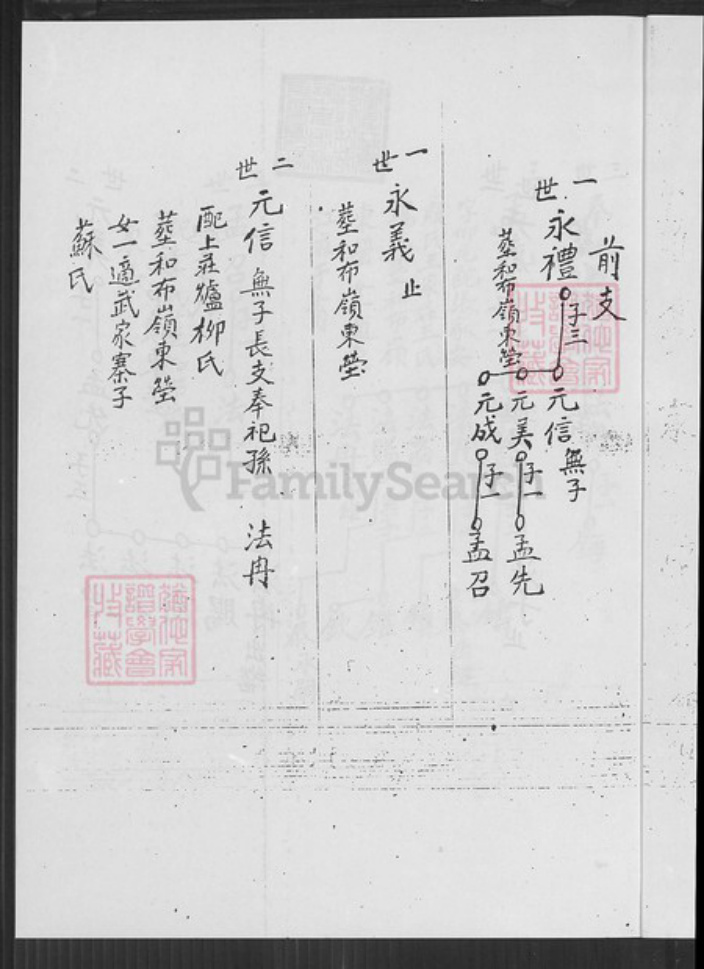 前支
一世 永禮 子三 元信 無子
葬和布嶺東塋 元美 子一 孟先
元成 子一 孟召
一世 永義 止
葬和布嶺東塋
二世 元信 無子長支奉祀孫 法冉
配上莊爐柳氏
葬和布嶺東塋
女一適武家寨子
蘇氏
FamilySearch